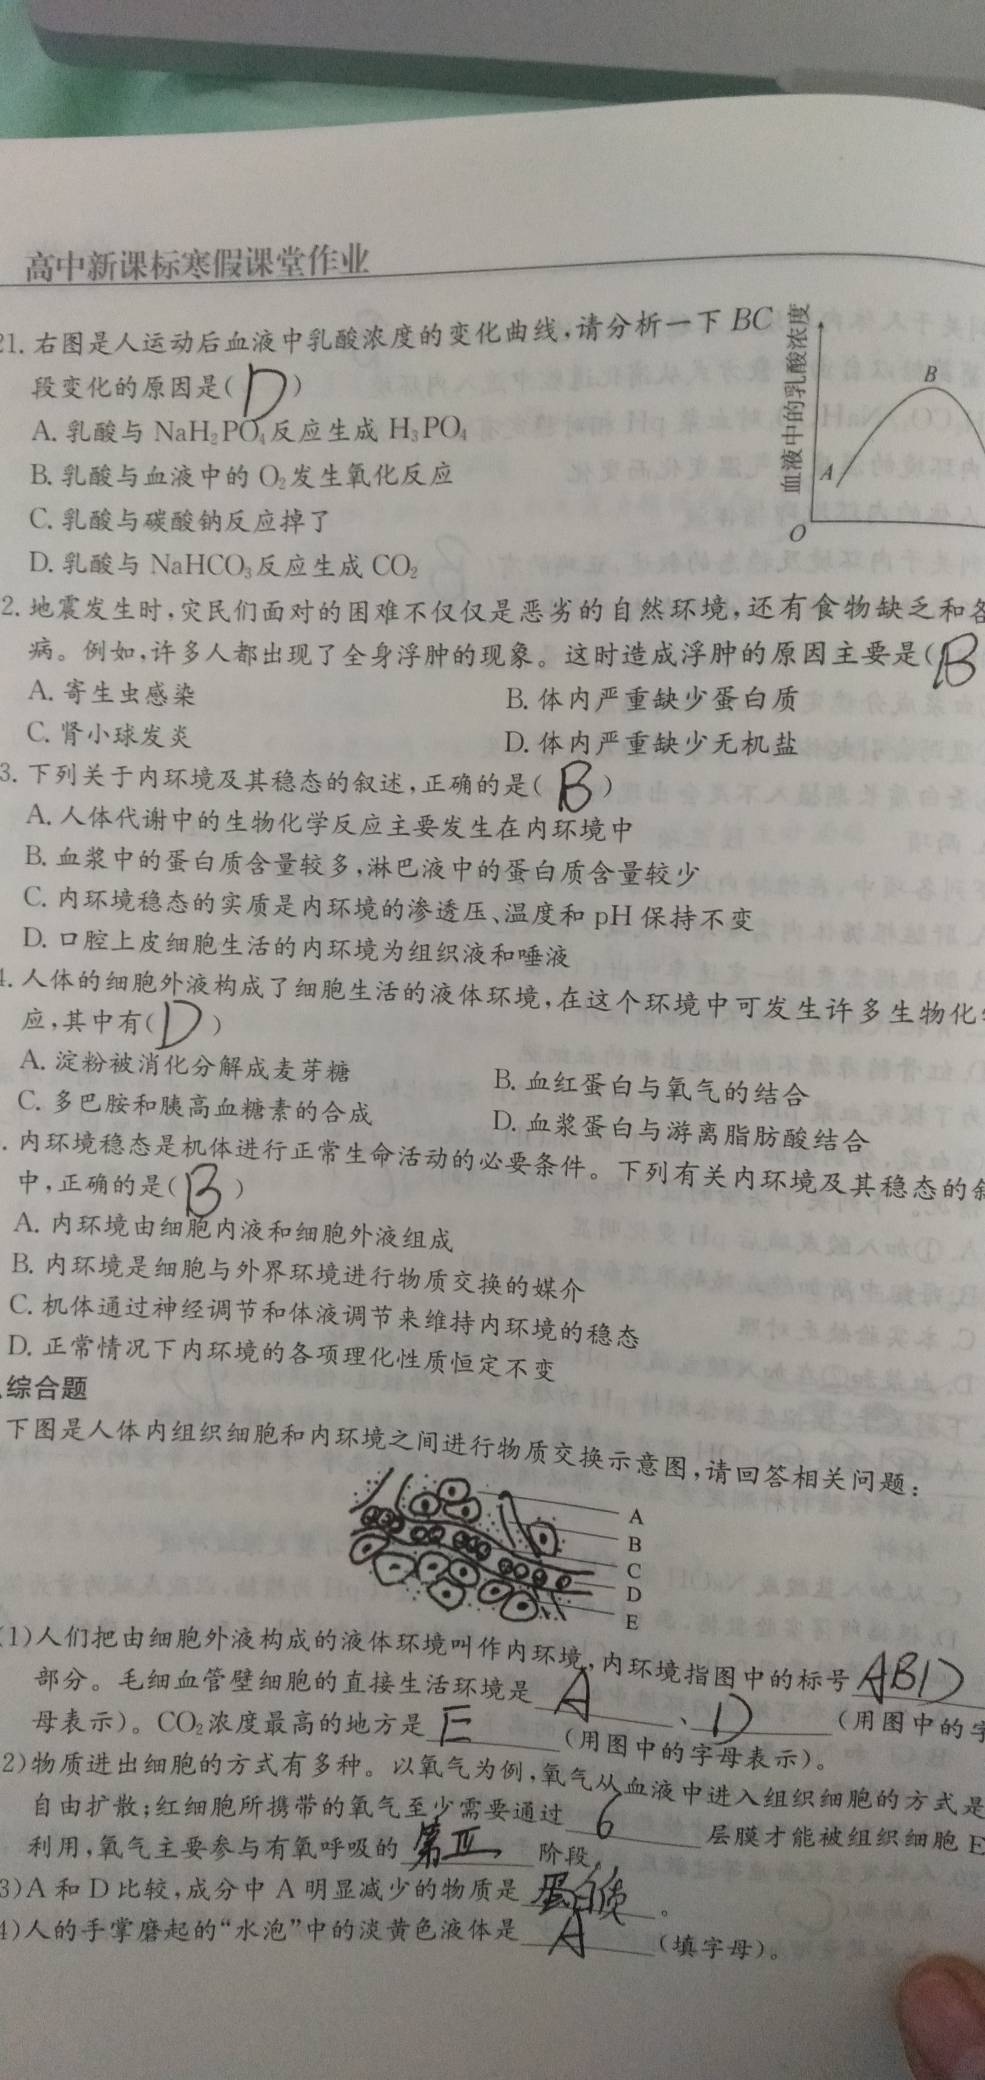 高中新课标寒假课堂作业
21. 右图是人运动后血液中乳酸浓度的变化曲线,请分析一下 BC
段变化的原因是( D )
A. 乳酸与 NaH₂PO₄反应生成 H₃PO₄
B. 乳酸与血液中的 O₂发生氧化反应
C. 乳酸与碳酸钠反应掉了
D. 乳酸与 NaHCO₃反应生成 CO₂
血液中的乳酸浓度
B
A
O
2. 地震发生时,灾民们面对的困难不仅仅是恶劣的自然环境,还有食物缺乏和各
病。例如,许多人都出现了全身浮肿的现象。这时造成浮肿的原因主要是( B
A. 寄生虫感染 B. 体内严重缺少蛋白质
C. 肾小球发炎 D. 体内严重缺少无机盐
3. 下列关于内环境及其稳态的叙述,正确的是( B )
A. 人体代谢中的生物化学反应主要发生在内环境中
B. 血浆中的蛋白质含量较多,淋巴液中的蛋白质含量较少
C. 内环境稳态的实质是内环境的渗透压、温度和 pH 保持不变
D. 口腔上皮细胞生活的内环境为组织液和唾液
4. 人体的细胞外液构成了细胞生活的液体环境,在这个环境中可发生许多生物化
应,其中有( D )
A. 淀粉被消化分解成麦芽糖 B. 血红蛋白与氧气的结合
C. 多巴胺和胰高血糖素的合成 D. 血浆蛋白与游离脂肪酸结合
. 内环境稳态是机体进行正常生命活动的必要条件。下列有关内环境及其稳态的叙
中,正确的是( B )
A. 内环境由细胞内液和细胞外液组成
B. 内环境是细胞与外界环境进行物质交换的媒介
C. 机体通过神经调节和体液调节来维持内环境的稳态
D. 正常情况下内环境的各项理化性质恒定不变
综合题
下图是人体内组织细胞和内环境之间进行物质交换示意图,请回答相关问题:
A
B
C
D
E
(1)人们把由细胞外液构成的液体环境叫作内环境,内环境指图中的标号 ABD
部分。毛细血管壁细胞的直接生活环境是 A 、 D (用图中的字
母表示)。CO₂浓度最高的地方是 E (用图中的字母表示)。
2)物质进出细胞的方式有多种。以氧气为例,氧气从血液中进入组织细胞的方式是
自由扩散;红细胞所携带的氧气至少需要通过 6 层膜才能被组织细胞 E
利用,氧气主要参与有氧呼吸的 第Ⅲ 阶段。
3)A 和 D 比较,成分中 A 明显减少的物质是 蛋白质 。
4)人的手掌磨起的“水泡”中的淡黄色液体是 A (填字母)。